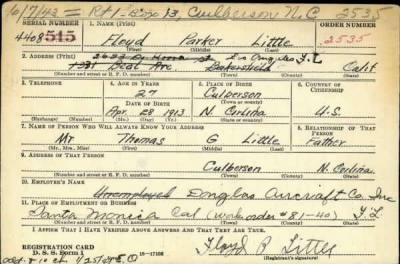 6/7/43 — Rt 1-Box 13, Culberson N.C. 2535
SERIAL NUMBER 1. NAME (Print) ORDER NUMBER
4408 515 Floyd Parker Little 2535
(First) (Middle) (Last)
2. ADDRESS (Print) Los Angeles F.L.
Ave. Bakersfield Calif
(Number and street or R. F. D. number) (Town) (County) (State)
3. TELEPHONE 4. AGE IN YEARS 5. PLACE OF BIRTH 6. COUNTRY OF CITIZENSHIP
27 Culberson
DATE OF BIRTH (Town or county)
Apr 28 1913 N. Carlina U.S.
(Exchange) (Number) (Mo.) (Day) (Yr.) (State or country)
7. NAME OF PERSON WHO WILL ALWAYS KNOW YOUR ADDRESS 8. RELATIONSHIP OF THAT PERSON
Mr Thomas G Little Father
(Mr., Mrs., Miss) (First) (Middle) (Last)
9. ADDRESS OF THAT PERSON
Culberson N. Carlina
(Number and street or R. F. D. number) (Town) (County) (State)
10. EMPLOYER'S NAME
Unemployed Douglas Aircraft Co. Inc
11. PLACE OF EMPLOYMENT OR BUSINESS
Santa Monica Cal (work order #81-40) F.L.
(Number and street or R. F. D. number) (Town) (County) (State)
I AFFIRM THAT I HAVE VERIFIED ABOVE ANSWERS AND THAT THEY ARE TRUE.
REGISTRATION CARD
D. S. S. Form 1 16-17105 Floyd P Little
(Registrant's signature)